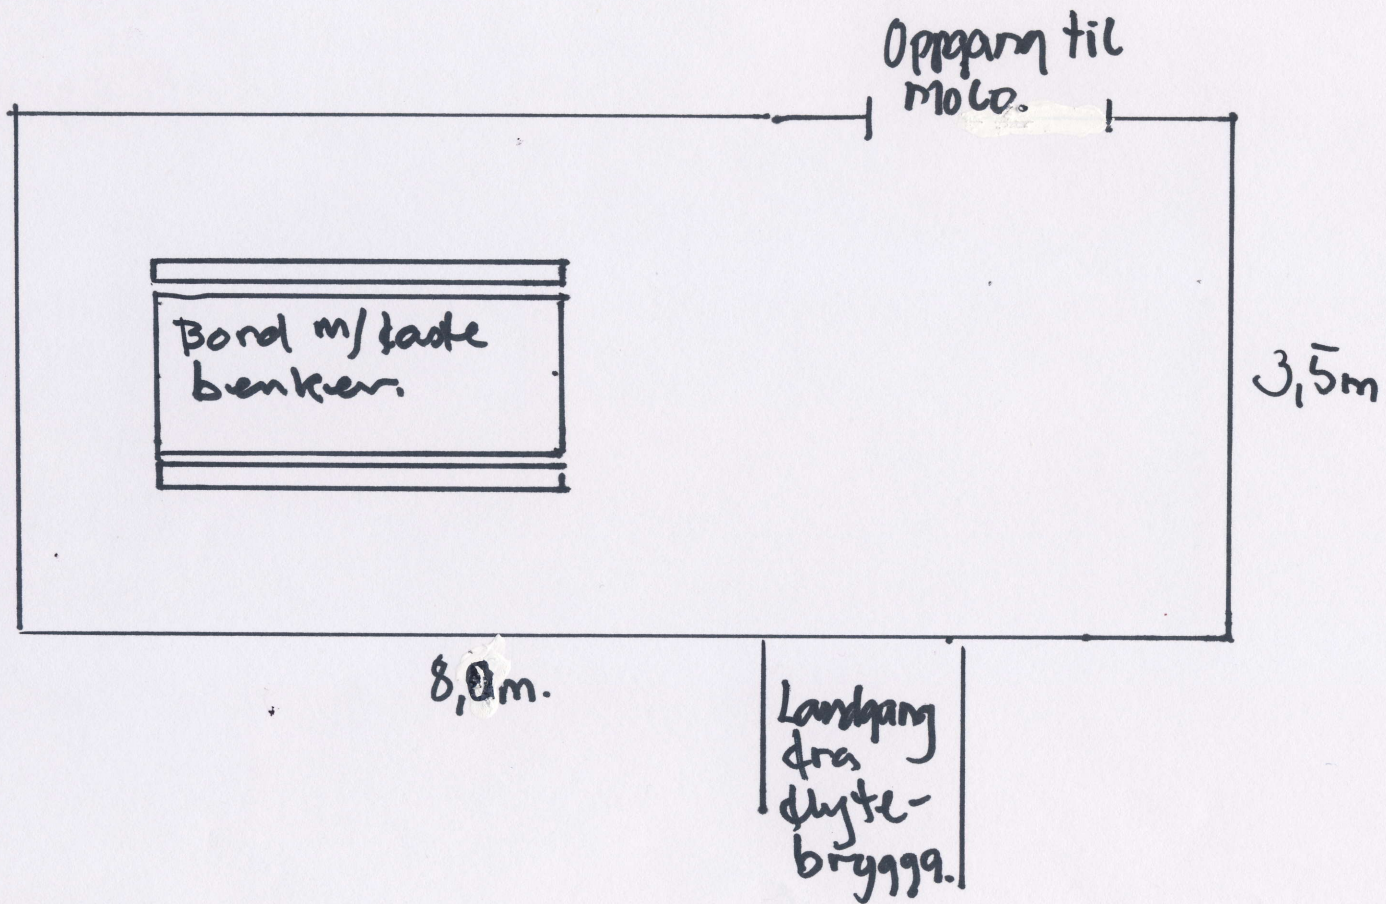 Oppgang til
molo.
Bord m/ faste
benker.
3,5m
8,0m.
Landgang
fra
flyte-
brygga.